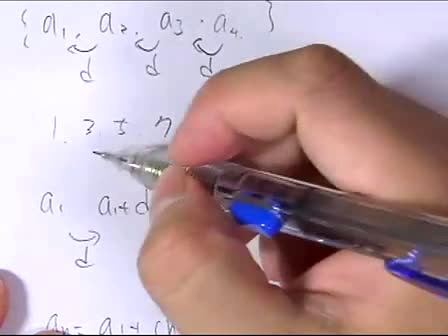 { a₁. a₂. a₃. a₄. }
d d d
1. 3. 5. 7
a₁ a₁+d
d
aₙ = a₁ + (n